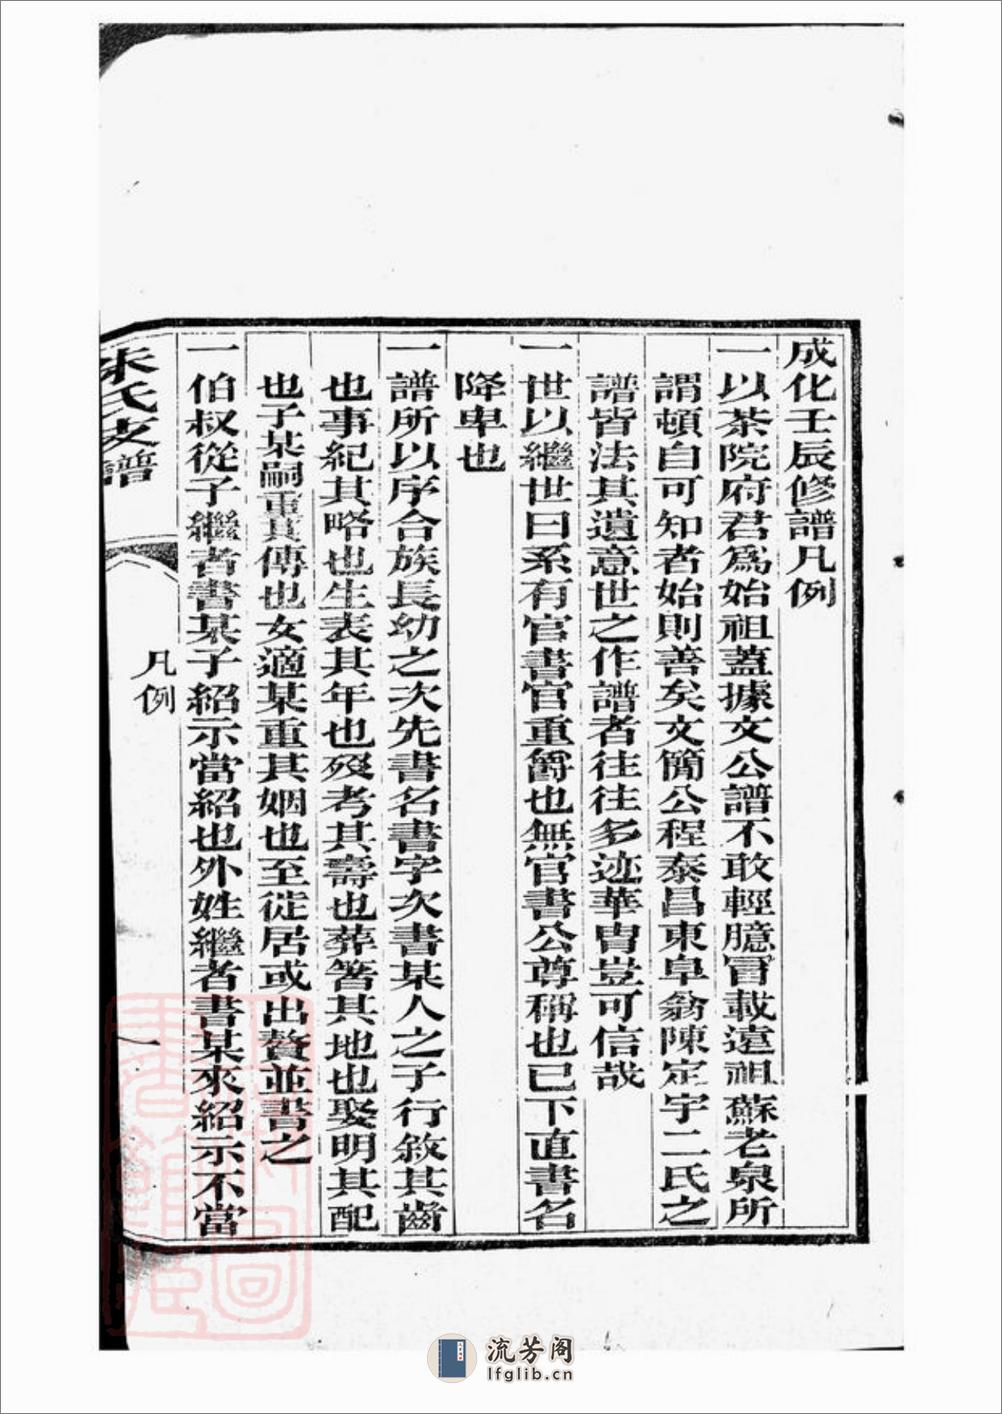 成化壬辰修譜凡例
一以茶院府君爲始祖蓋據文公譜不敢輕臆冒載遠祖蘇老泉所
謂頓自可知者始則善矣文簡公程泰昌東阜翁陳定宇二氏之
譜皆法其遺意世之作譜者往往多迹華冑豈可信哉
一世以繼世曰系有官書官重爵也無官書公尊稱也已下直書名
降卑也
一譜所以序合族長幼之次先書名書字次書某人之子行敘其齒
也事紀其略也生表其年也歿考其壽也葬著其地也娶明其配
也子某嗣重其傳也女適某重其姻也至徙居或出贅並書之
一伯叔從子繼者書某子紹示當紹也外姓繼者書某來紹示不當
朱氏支譜
凡例
一
流芳阁
lfglib.cn